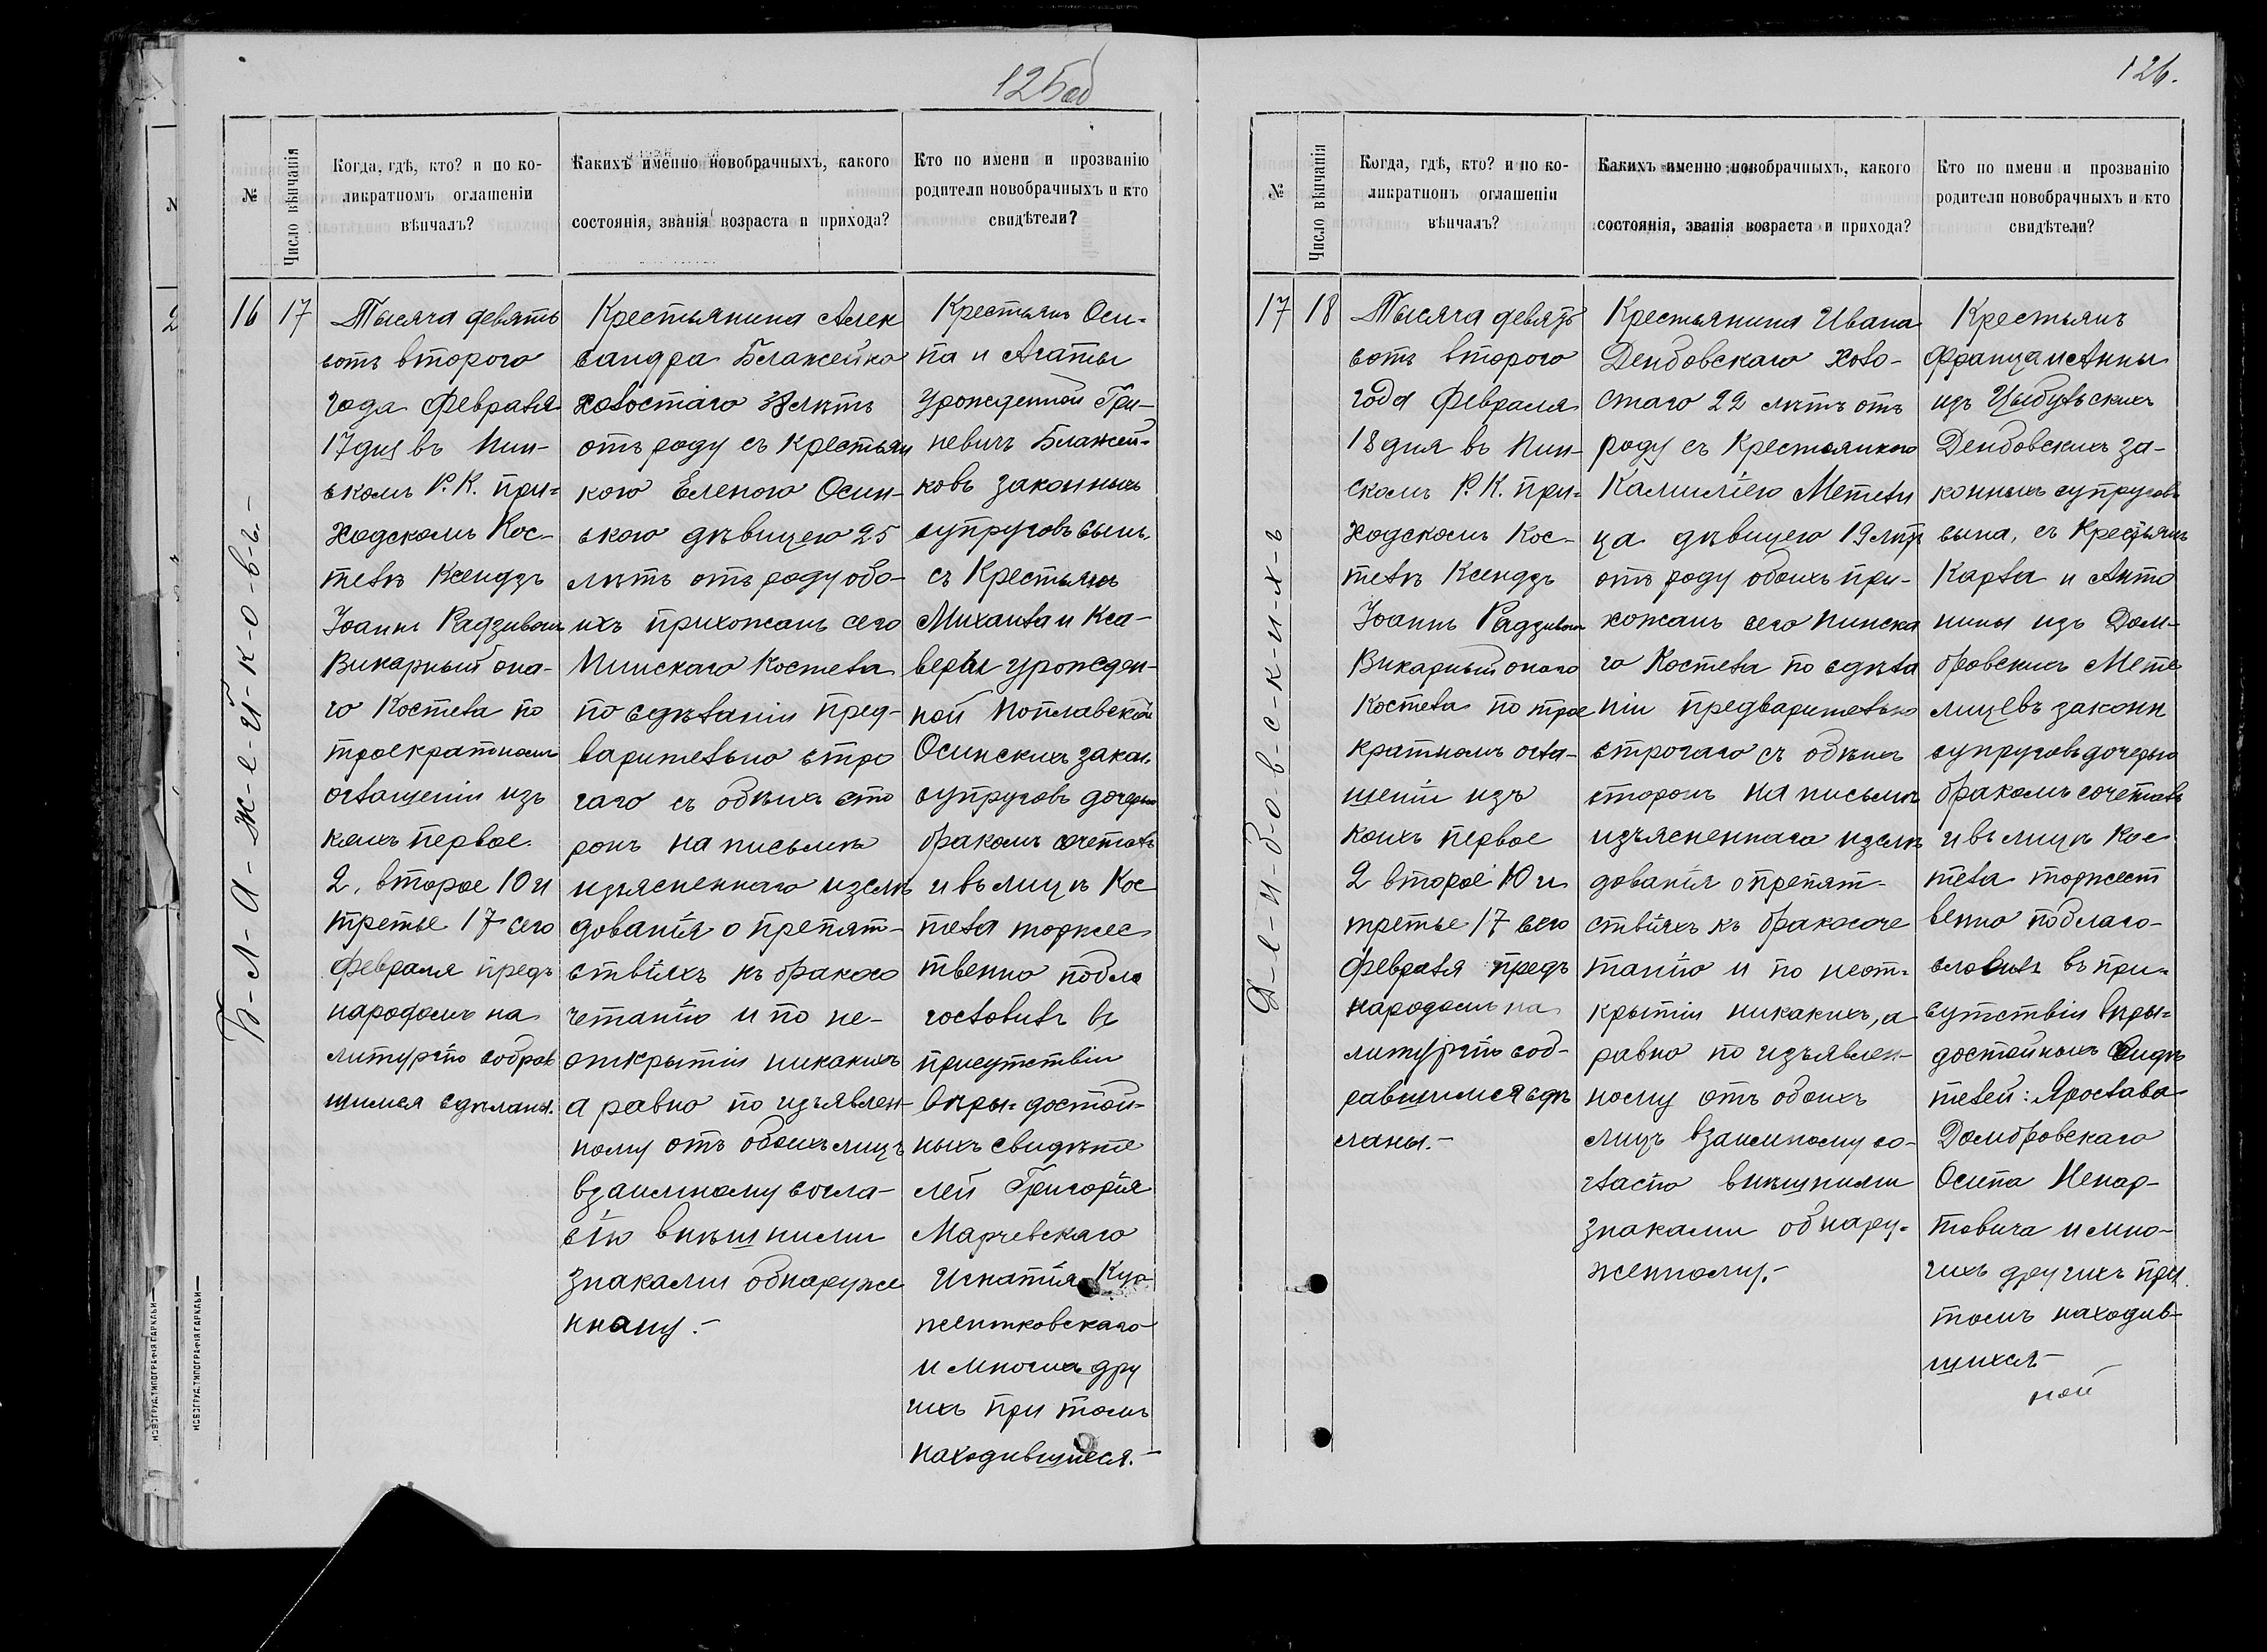 125об
№
Число вѣнчанія
Когда, гдѣ, кто? и по ко-
ликратномъ оглашеніи
вѣнчалъ?
Какихъ именно новобрачныхъ, какого
состоянія, званія возраста и прихода?
Кто по имени и прозванію
родители новобрачныхъ и кто
свидѣтели?
16
17
Б-л-а-ж-е-й-к-о-в-ъ-
Тысяча девять
сотъ второго
года Февраля
17 дня въ Пин-
скомъ Р. К. при=
ходскомъ Кос-
телѣ Ксендзъ
Іоаннъ
Викарный она-
го Костела по
троекратномъ
оглашеніи изъ
коихъ первое
2, второе 10 и
третье 17 сего
Февраля предъ
народомъ на
литургію собрав
шимся сдѣланы.
Крестьянина Алек
сандра Блажейко
холостаго лѣтъ
отъ роду съ Крестьян
кою Еленою Осин-
скою дѣвицею 25
лѣтъ отъ роду обо-
ихъ прихожанъ сего
Пинскаго Костела
по сдѣланіи пред-
варительно стро
гаго съ обѣихъ сто
ронъ на письмѣ
изъясненнаго изслѣ
дованія о препят-
ствіяхъ къ бракосо
четанію и по не-
открытіи никакихъ
а равно по изъявлен-
ному отъ обоихъ лицъ
взаимному согла-
сію внѣшними
знаками обнаруже
нному.-
Крестьянъ Оси-
па и Агаты
урожденной Гри-
невичъ Блажей-
ковъ законныхъ
супруговъ сынъ,
съ Крестьянъ
Михаила и Кса-
веріи урожден-
ной Поплавской
Осинскихъ закон.
супруговъ дочерью
бракомъ сочеталъ
и въ лицѣ Кос
тела торжес
твенно побла
гословилъ въ
присутствіи
вѣры-достой-
ныхъ свидѣте
лей Григорія
Марчевскаго
Игнатія
и многихъ дру
гихъ при томъ
находившихся.-
НОВОГРУД.ТИПОГРАФІЯ ГАРКАВИ
НОВОГРУД.ТИПОГРАФІЯ ГАРКАВИ
126.
№
Число вѣнчанія
Когда, гдѣ, кто? и по ко-
ликратномъ оглашеніи
вѣнчалъ?
Какихъ именно новобрачныхъ, какого
состоянія, званія возраста и прихода?
Кто по имени и прозванію
родители новобрачныхъ и кто
свидѣтели?
17
18
Д-е-н-б-о-в-с-к-и-х-ъ
Тысяча девять
сотъ второго
года Февраля
18 дня въ Пин-
скомъ Р. К. при=
ходскомъ Кос-
телѣ Ксендзъ
Іоаннъ
Викарный онаго
Костела по трое
кратномъ огла-
шеніи изъ
коихъ первое
2 второе 10 и
третье 17 сего
Февраля предъ
народомъ на
литургію соб-
равшимся сдѣ
ланы.-
Крестьянина Ивана
Денбовскаго холо-
стаго 22 лѣтъ отъ
роду съ Крестьянкою
Камиліею Метели
ца дѣвицею 19 лѣтъ
отъ роду обоихъ при-
хожанъ сего Пинска
го Костела по сдѣла
ніи предварительно
строгаго съ обѣихъ
сторонъ на письмѣ
изъясненнаго изслѣ
дованія о препят-
ствіяхъ къ бракосоче
танію и по неот-
крытіи никакихъ, а
равно по изъявлен-
ному отъ обоихъ
лицъ взаимному со-
гласію внѣшними
знаками обнару-
женному.-
Крестьянъ
Франца и Анны
изъ Цыбульскихъ
Денбовскихъ за-
конныхъ супруговъ
сына, съ Крестьянъ
Карла и Анто
нины изъ Дом-
бровскихъ Мете
лицевъ законн
супруговъ дочерью
бракомъ сочеталъ
и въ лицѣ Кос
тела торжест
венно поблаго-
словилъ въ при-
сутствіи вѣры-
достойныхъ свидѣ
телей: Ярослава
Домбровскаго
Осипа Ненар-
товича и мно-
гихъ другихъ при
томъ находив-
шихся-